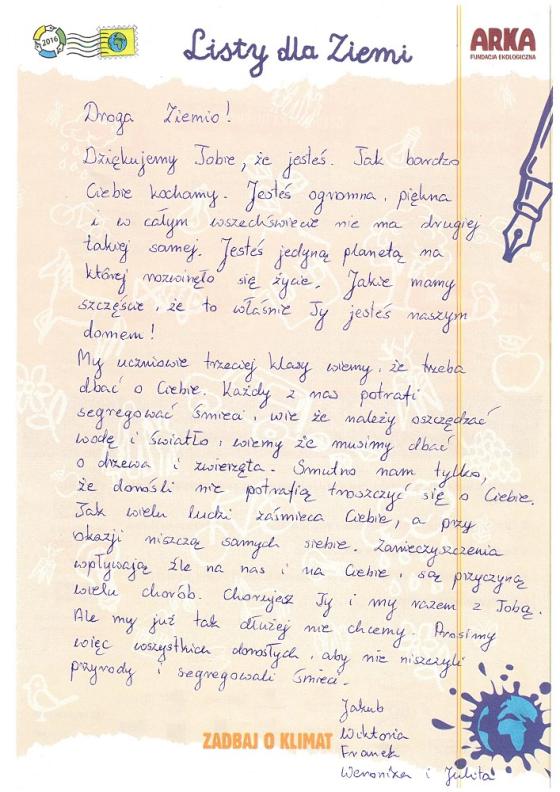 2016
Listy dla Ziemi
ARKA
FUNDACJA EKOLOGICZNA
Droga Ziemio!
Dziękujemy Tobie, że jesteś. Tak bardzo
Ciebie kochamy. Jesteś ogromna, piękna
i w całym wszechświecie nie ma drugiej
takiej samej. Jesteś jedyną planetą na
której rozwinęło się życie. Jakie mamy
szczęście, że to właśnie Ty jesteś naszym
domem!
My uczniowie trzeciej klasy wiemy, że trzeba
dbać o Ciebie. Każdy z nas potrafi
segregować śmieci, wie że należy oszczędzać
wodę i światło, wiemy że musimy dbać
o drzewa i zwierzęta. Smutno nam tylko,
że dorośli nie potrafią troszczyć się o Ciebie.
Tak wielu ludzi zaśmieca Ciebie, a przy
okazji niszczą samych siebie. Zanieczyszczenia
wpływają źle na nas i na Ciebie, są przyczyną
wielu chorób. Chorujesz Ty i my razem z Tobą.
Ale my już tak dłużej nie chcemy. Prosimy
więc wszystkich dorosłych, aby nie niszczyli
przyrody i segregowali śmieci.
Jakub
Wiktoria
Franek
Weronika i Julita
ZADBAJ O KLIMAT